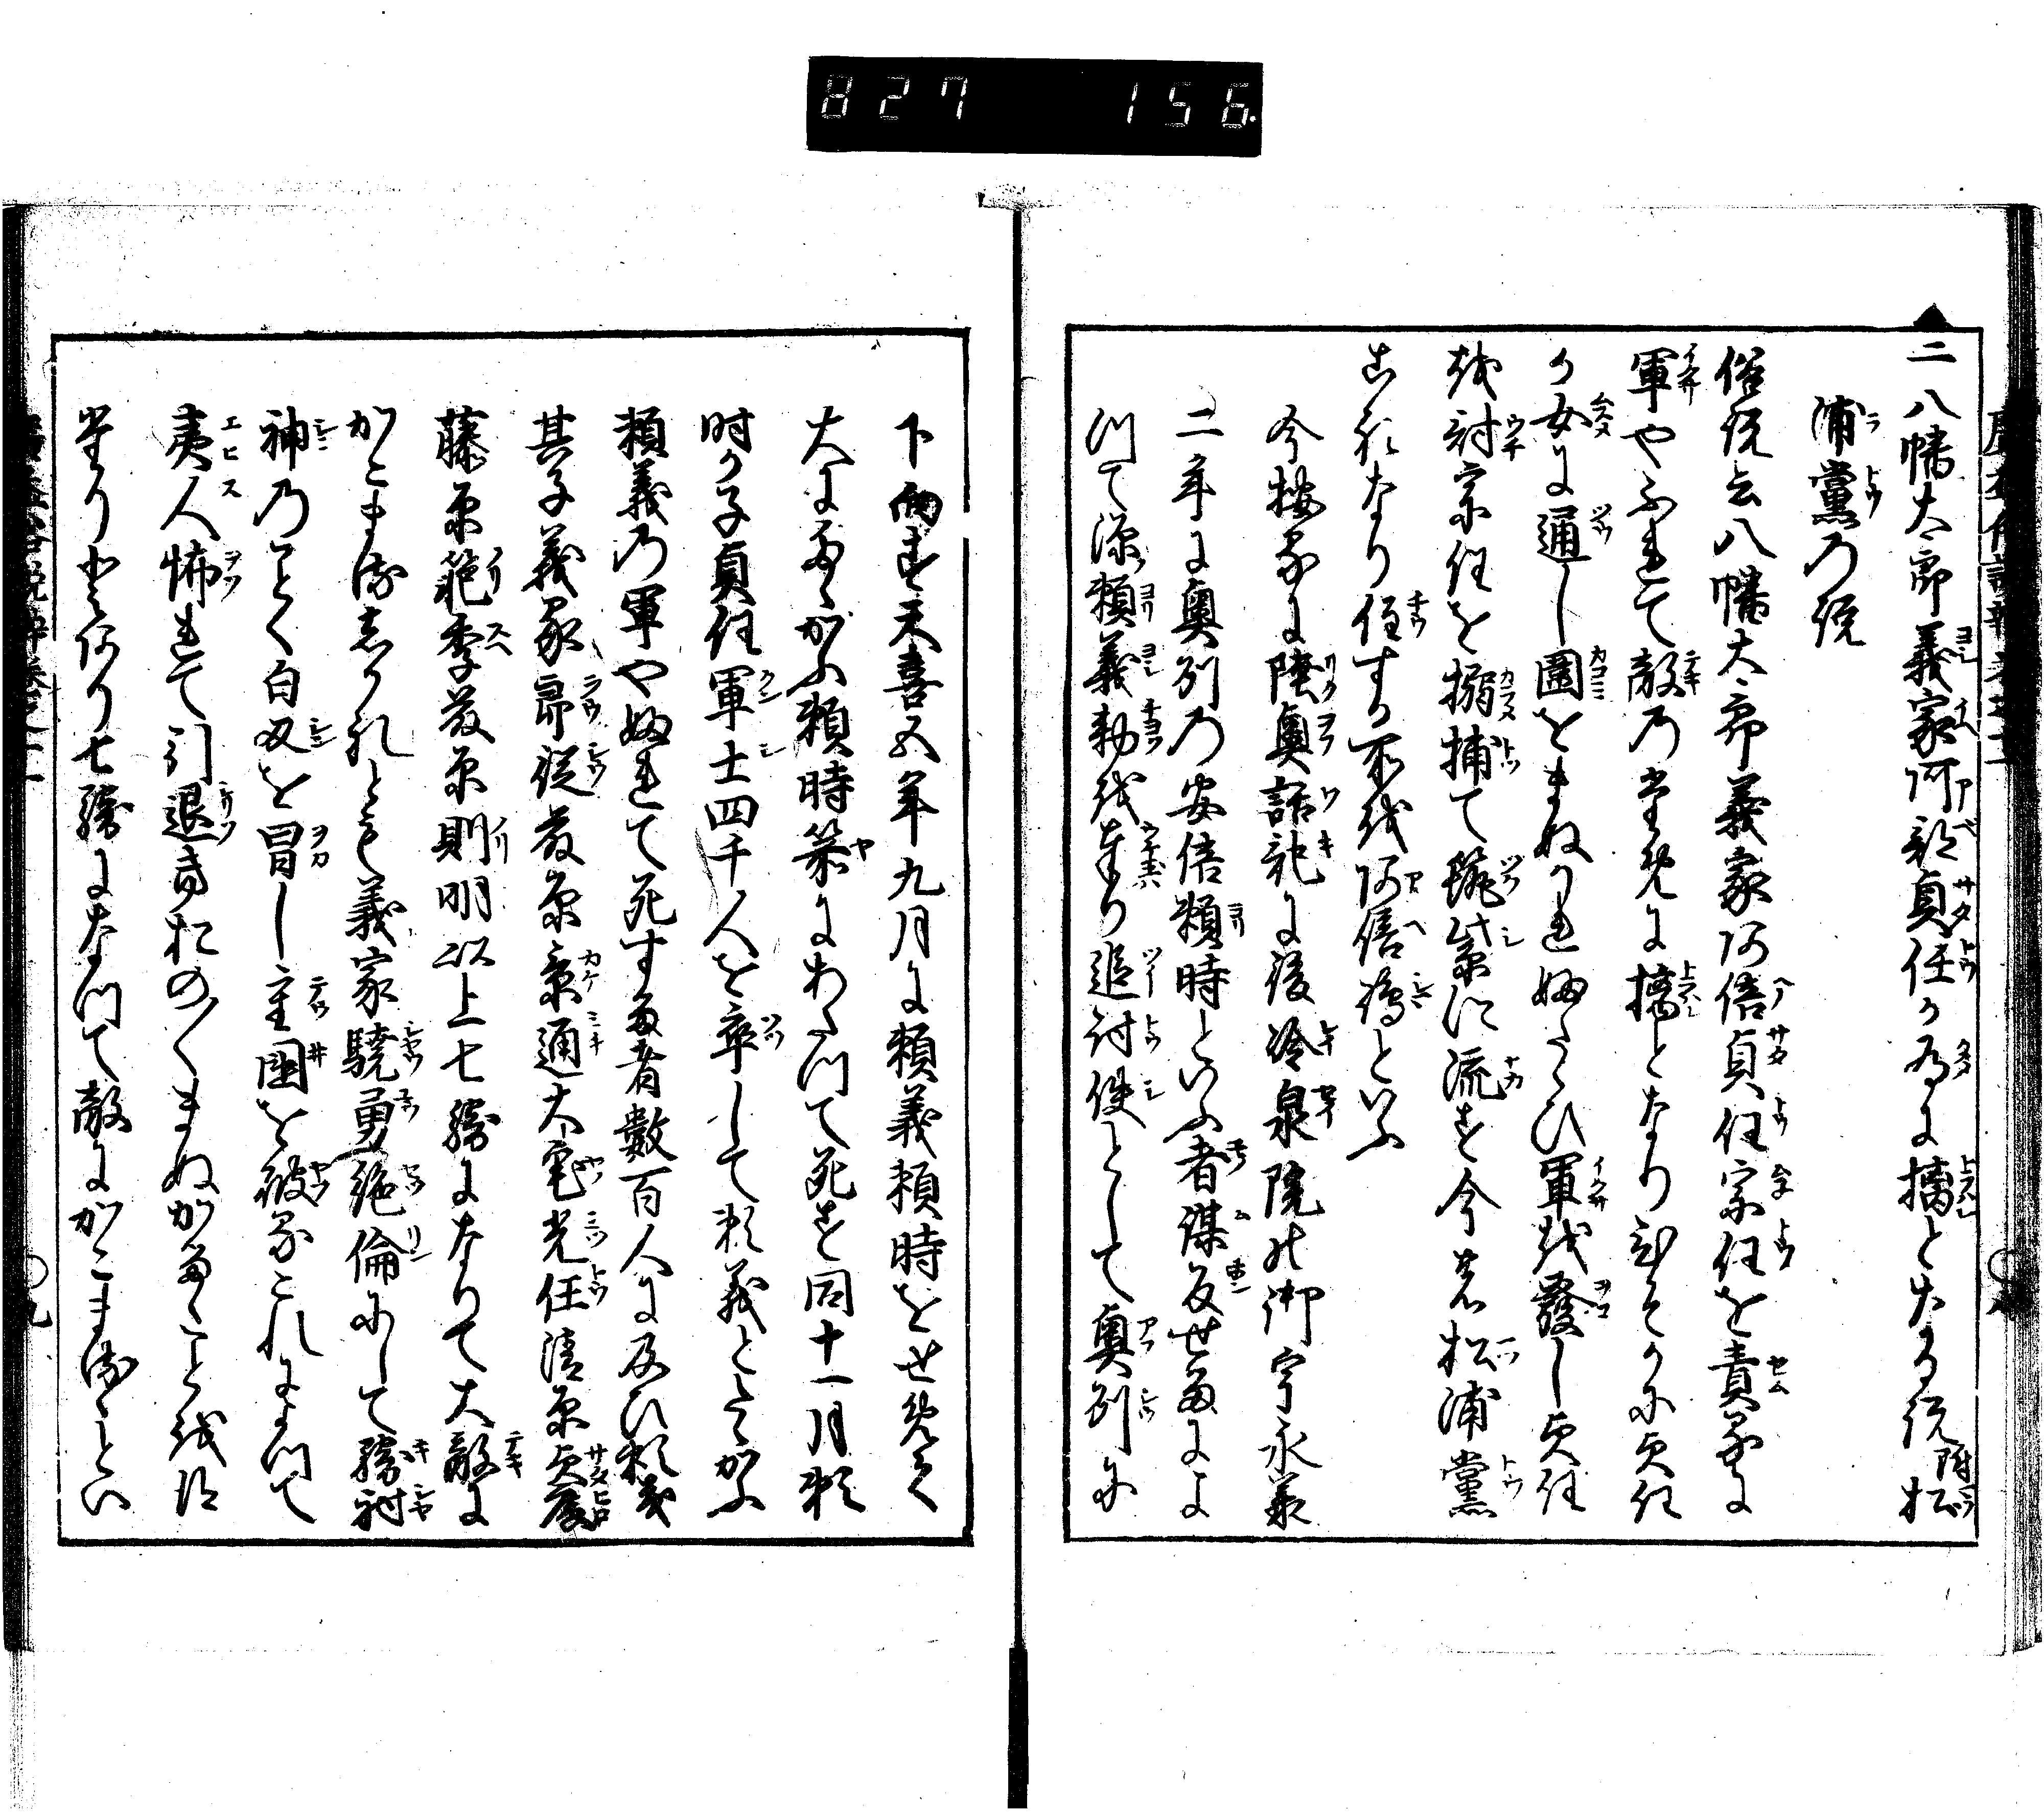 827 156
二 八幡太郎義家阿部貞任が為に擒となる説 附 松
浦黨の説
俗説云八幡太郎義家阿倍貞任宗任を責るに
軍やぶれて敵の堂免に擒となりひそかに貞任
が女に通し圍をまぬかれ婦たゝび軍を發し貞任
を討宗任を搦捕て筑紫に流す今の松浦黨
これなり住する所を阿倍嶋といふ
今按るに陸奥話記に後冷泉院の御宇永承
二年に奥州の安倍頼時といふ者謀反せるによ
つて源頼義勅をうけ給り追討使として奥州に
下向す天喜五年九月に頼義頼時をせめて
大にたゝかふ頼時箭にあたつて死す同十一月頼
時が子貞任軍士四千人を率して頼義とたゝかふ
頼義の軍やぶれて死する者數百人に及び頼義
其子義家郎從藤原景通大宅光任清原貞廣
藤原範季藤原則明以上七騎になりて大敵に
かこまるしかれとも義家驍勇絶倫にして騎射
神のごとく白刃を冒し重圍を破るこれによつて
夷人怖れて引退きおの〱まぬかるゝことを得
たりとあり七騎になつて敵にかこまるゝとい